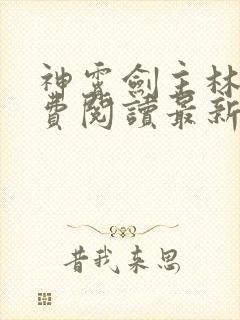 神霄劍主林
費閱讀最新
昔我来思